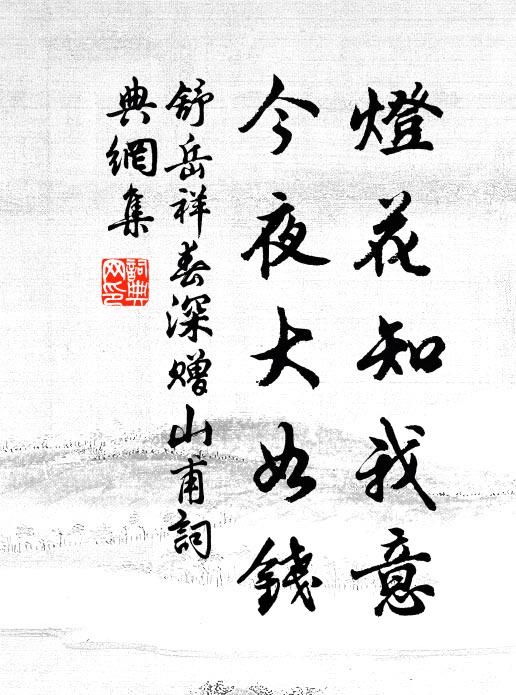 燈花知我意
今夜大如錢
舒岳祥春深贈山甫詞
典網集
詞典
网印